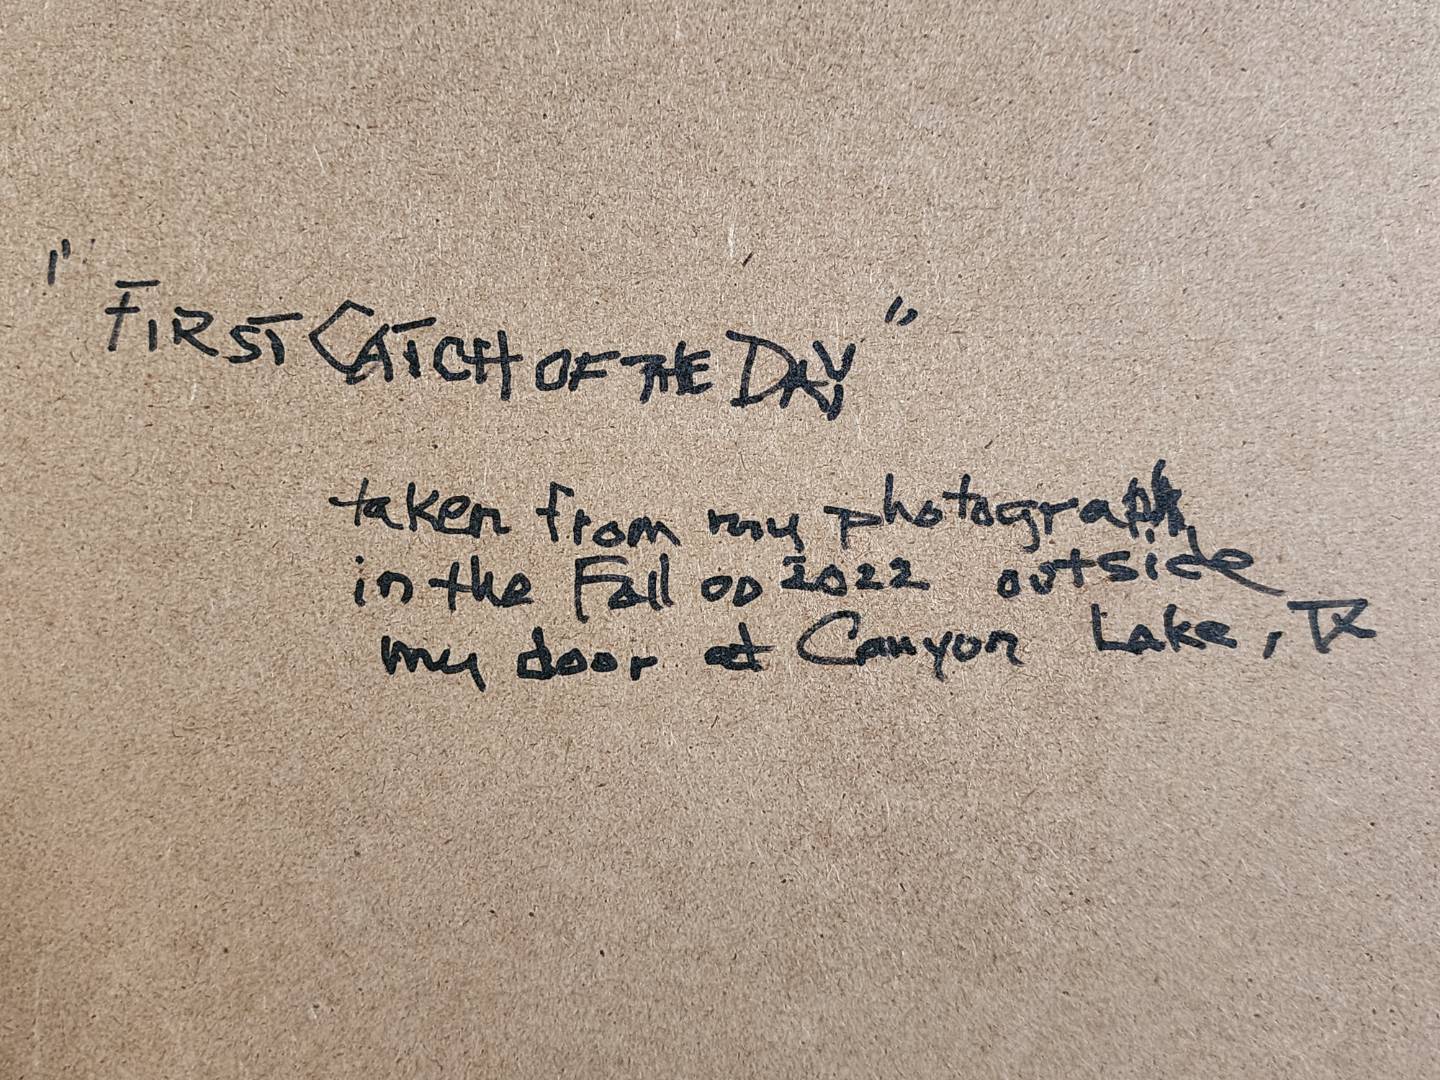 "FIRST CATCH OF THE DAY"
taken from my photograph
in the Fall oo 2022 outside
my door at Canyon Lake, TX